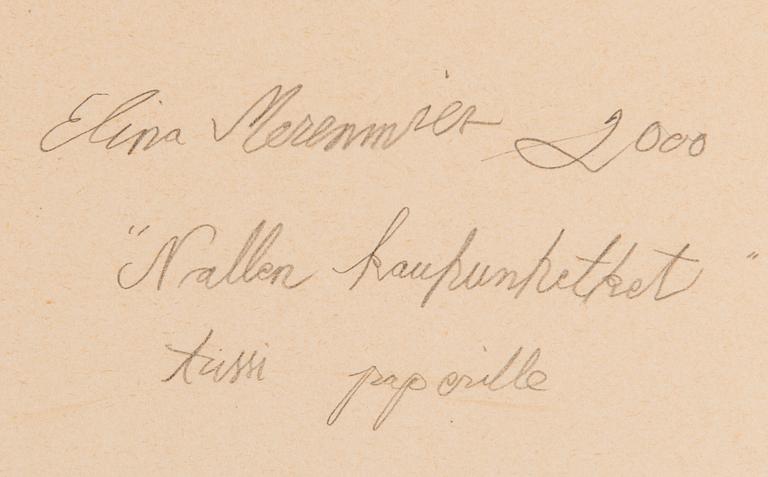 Elina Merenmies 2000
"Nallen kaupunkiretket"
tussi paperille